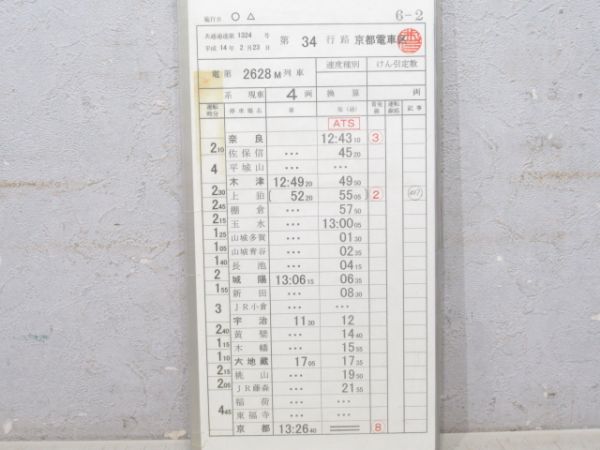 施行日 ○ △ 6-2
共通達達第 1324 号
平成 14年 2月 23日
第 34 行路 京都電車区
電 第 2628M 列車 速度種別 けん引定数
系 現車 4 両 換算 両
運転時分 停車場名 着 発(通) 着発線 運転線路 記事
ATS
奈良 12:43 10 3
2 10 佐保信 ... 45 20
4 平城山 ... ...
木津 12:49 20 49 50
2 30 上狛 [ 52 20 55 05 ] 2
2 45 棚倉 ... 57 50
2 15 玉水 ... 13:00 05
1 25 山城多賀 ... 01 30
1 05 山城青谷 ... 02 35
1 40 長池 ... 04 15
2 城陽 13:06 15 06 35
1 55 新田 ... 08 30
3 JR小倉 ... ...
宇治 11 30 12
2 40 黄檗 ... 14 40
1 15 木幡 ... 15 55
1 10 六地蔵 17 05 17 35
2 15 桃山 ... 19 50
2 05 JR藤森 ... 21 55
稲荷 ... ...
4 45 東福寺 ... ...
京都 13:26 40 8